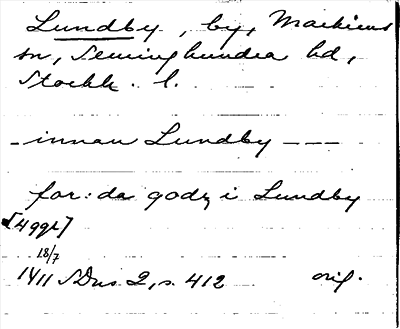 Lundby, by, Markims
sn, Seminghundra hd,
Stockh. l.
– innan Lundby – – –
for:da godz i Lundby
[4 ggr]
18/7
1411 SDns 2, s. 412 orig.